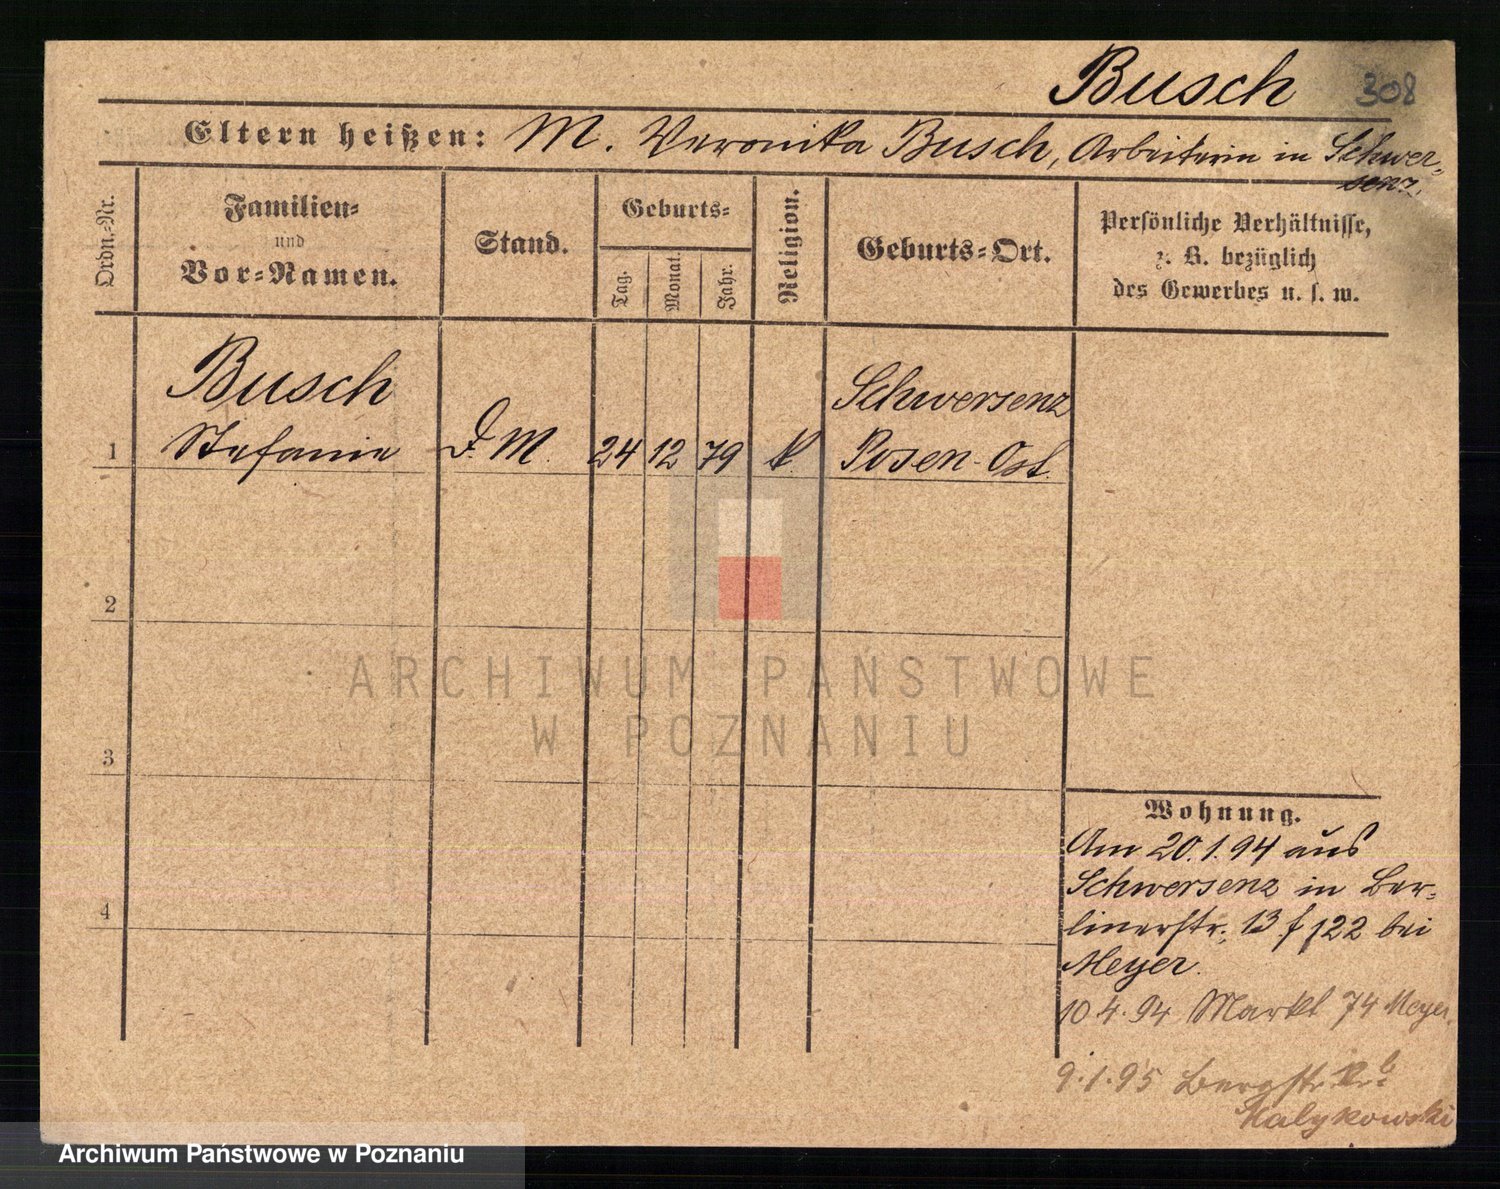 Busch 308
Eltern heißen: M. Veronika Busch, Arbeiterin in Schwer-
senz.
Ordn.-Nr.
Familien-
und
Vor-Namen.
Stand.
Geburts-
Tag.
Monat.
Jahr.
Religion.
Geburts-Ort.
Persönliche Verhältnisse,
z. B. bezüglich
des Gewerbes u. s. w.
Busch Schwersenz
1 Stefanie D. M. 24 12 79 k. Posen-Ost.
2
3
4
ARCHIWUM PAŃSTWOWE
W POZNANIU
Wohnung.
Am 20.1.94 aus
Schwersenz in Ber-
linerstr. 13 f 122 bei
Meyer.
10.4.94 Markt 74 Meyer.
9.1.95 Bergstr.
Kalykowski
Archiwum Państwowe w Poznaniu